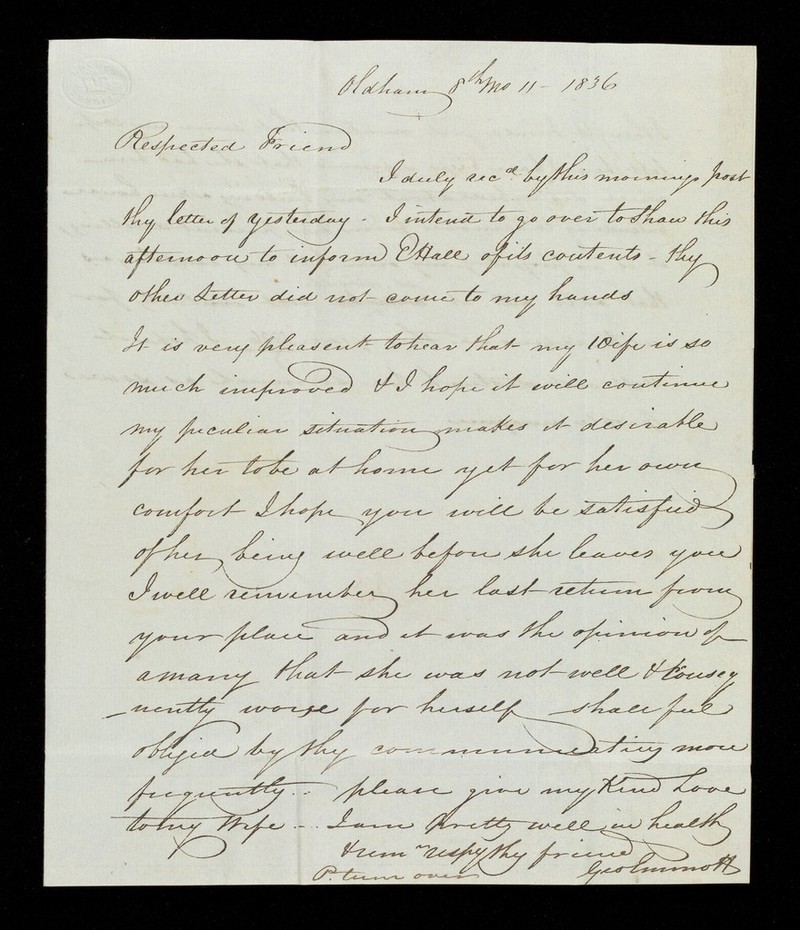 Oldham 8th Mo 11 - 1836
Respected Friend
I duly recd by this mornings post
thy letter of yesterday - I intend to go over to Shaw this
afternoon to inform E Hall of its contents - thy
other Letter did not come to my hands
It is very pleasent to hear that my Wife is so
much improved & I hope it will continue
my peculiar situation makes it desirable
for her to be at home yet for her own
comfort I hope you will be satisfied
of her being well before she leaves you
I well remember her last return from
your place and it was the opinion of
a many that she was not well & Conseq
-uently worse for herself shall feel
obliged by thy communicating more
frequently .. please give my Kind Love
to my Wife ... I am pretty well in health
& remn respy thy friend
P. turn over Geo Emmott